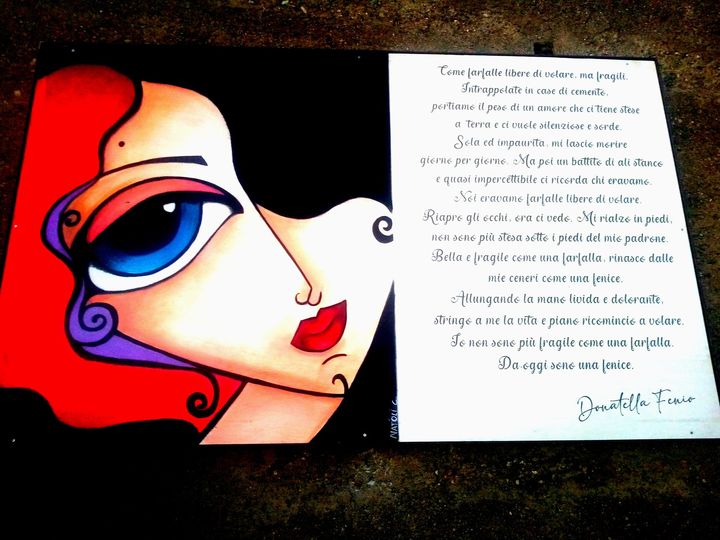 Come farfalle libere di volare, ma fragili.
Intrappolate in case di cemento,
portiamo il peso di un amore che ci tiene stese
a terra e ci vuole silenziose e sorde.
Sola ed impaurita, mi lascio morire
giorno per giorno. Ma poi un battito di ali stanco
e quasi impercettibile ci ricorda chi eravamo.
Noi eravamo farfalle libere di volare.
Riapro gli occhi, ora ci vedo. Mi rialzo in piedi,
non sono più stesa sotto i piedi del mio padrone.
Bella e fragile come una farfalla, rinasco dalle
mie ceneri come una fenice.
Allungando la mano livida e dolorante,
stringo a me la vita e piano ricomincio a volare.
Io non sono più fragile come una farfalla.
Da oggi sono una fenice.
Donatella Fenio
NATOLI C.